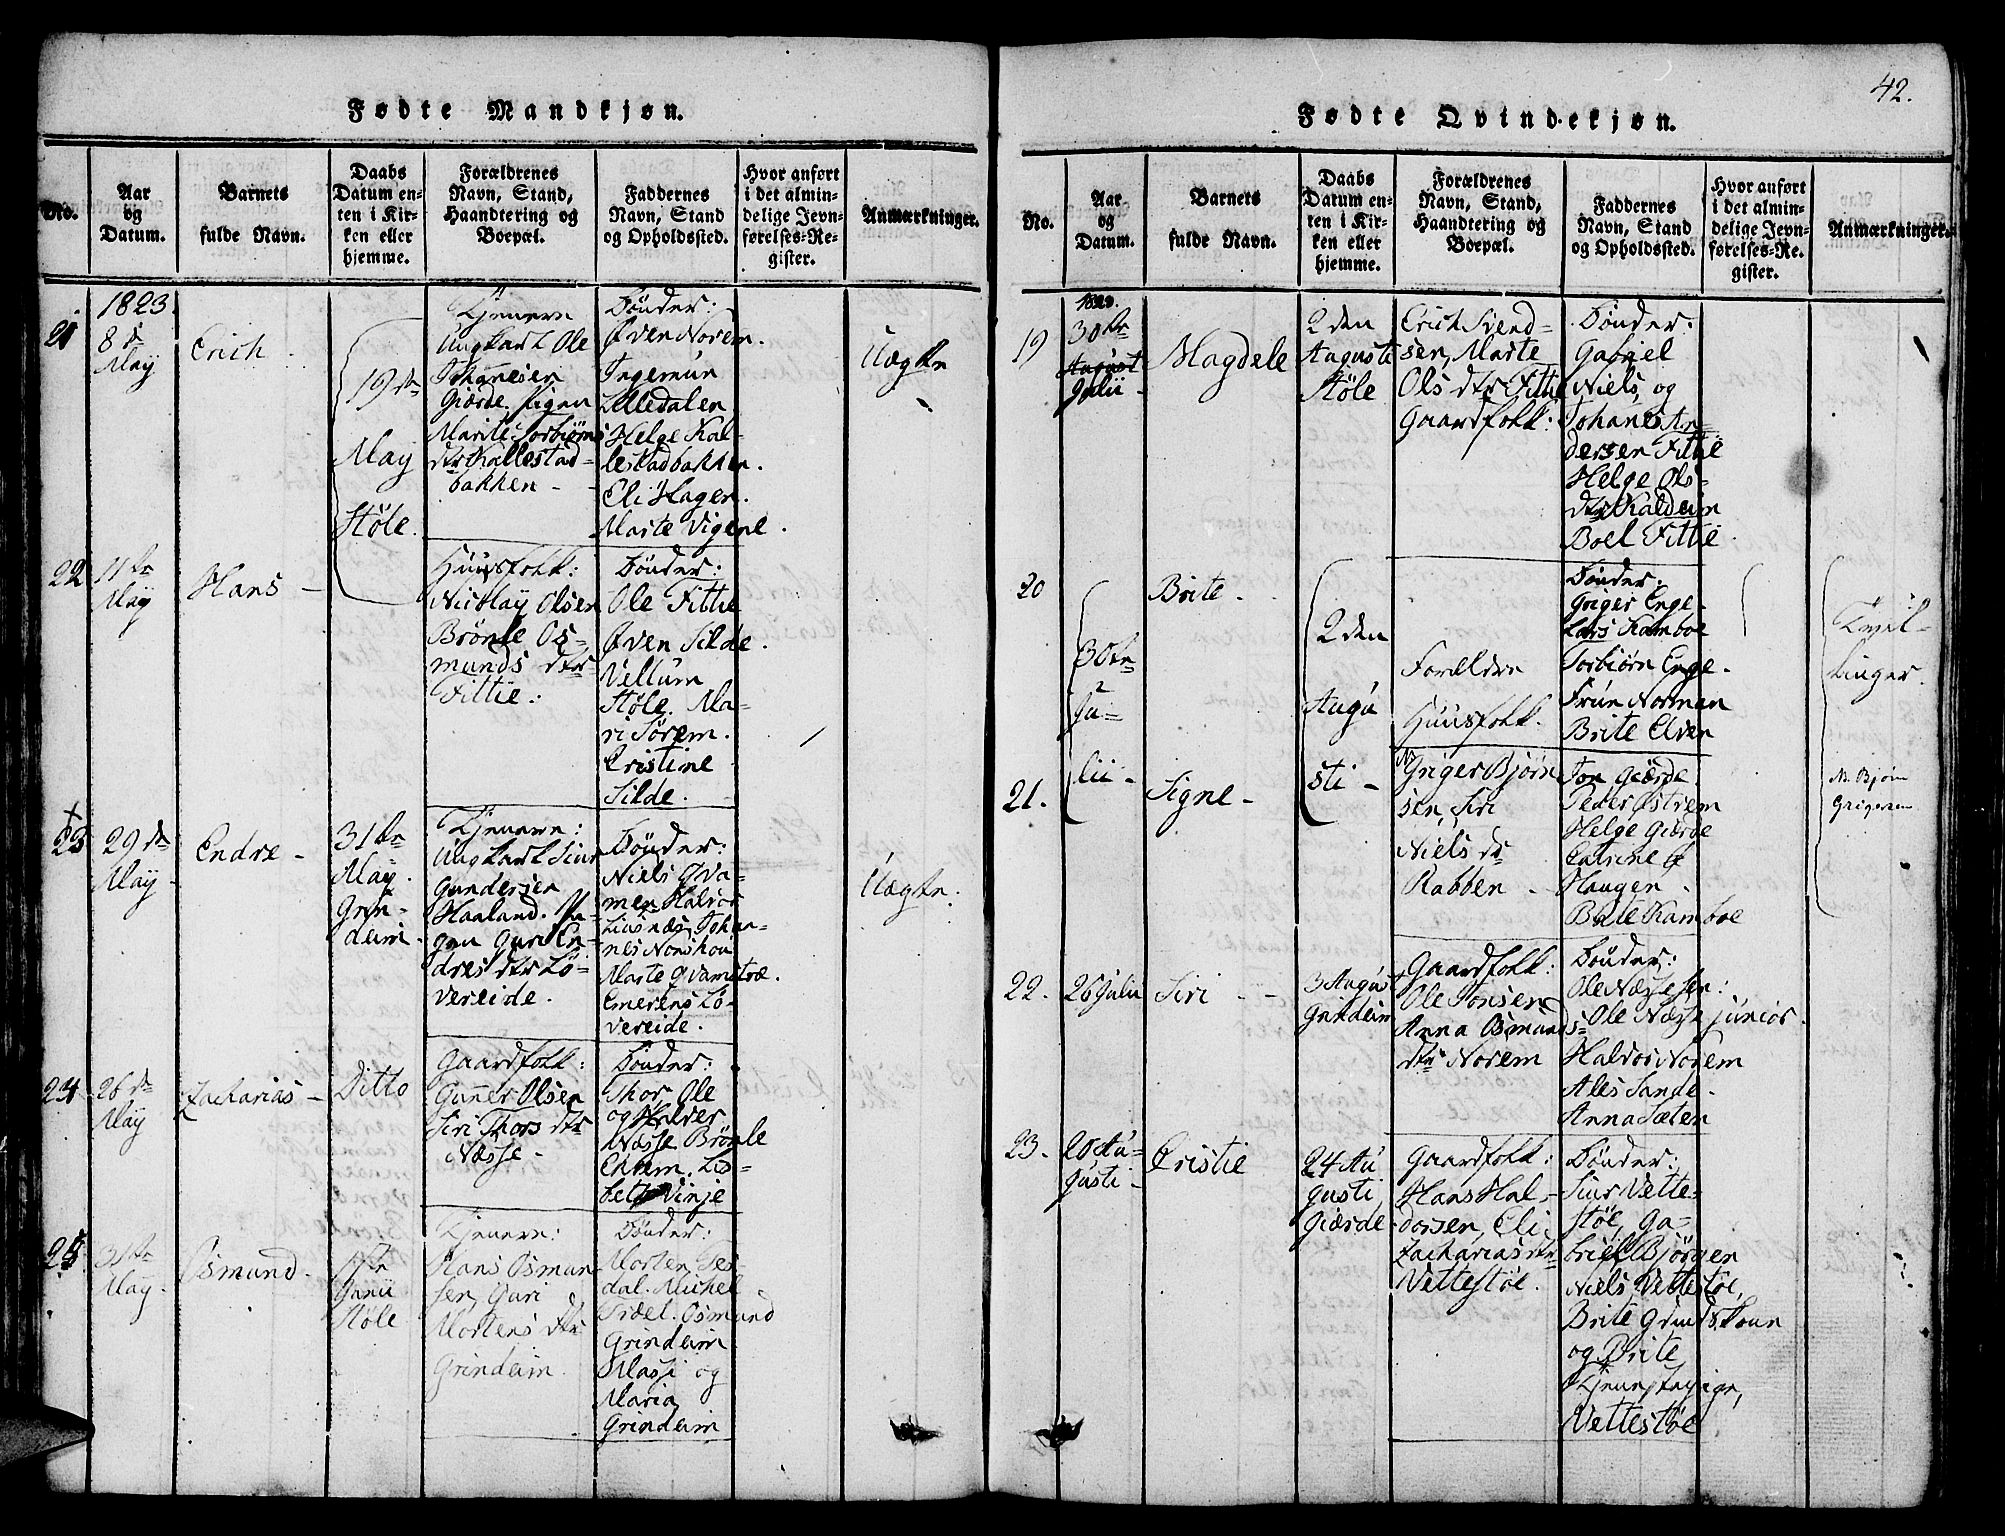 42.
Fødte Mandkjøn.
No.
Aar
og
Datum.
Barnets
fulde Navn.
Daabs
Datum en-
ten i Kir-
ken eller
hjemme.
Forældrenes
Navn, Stand,
Haandtering og
Boepæl.
Faddernes
Navn, Stand
og Opholdssted.
Hvor anført
i det almin-
delige Jevn-
førelses-Re-
gister.
Anmærkninger.
21
1823.
8 de
May
Erich.
19 de
May
Støle.
Tjenere
Ungkarl Ole
Johanesen
Giærde. Pigen
Marite Torbiørns
dtr Kallestad-
bakken -
Bønder:
Øven Norem.
Ingemun
Lilledalen
Helge Kal-
lestadbakken.
Eli Hagen.
Marte Vigene.
Uægte
22
11 te
May
Hans -
Huusfolk:
Nicolay Olsen
Brønle Os-
munds dtr
Fittie:
Bønder:
Ole Fittie
Øven Silde.
Vellum
Støle. Ma-
ri Sørem.
Cristine
Silde.
23
29 de
May -
Endre -
31 te
May.
Grin-
deim.
Tjenere:
Ungkarl Siur
Gundersen
Haaland. Pi-
gen Guri En-
dres dtr Lø-
vereide.
Bønder:
Niels Qva-
men Haldor
Liusnæs, Johan-
nes Nonskou
Marte Qvamstræ.
Emerens Lø-
vereide.
Uægte.
24
26 de
May
Zacharias -
Ditto
Gaardfolk:
Guner Olsen
Siri Thors dtr
Næsse -
Bønder:
Thor, Ole
og Halver
Næsse Brønle
Ekrem. Lis-
bet Vinje
25
31 te
May.
Osmund.
1ste
Junii
Støle
Tjenere:
Hans Osmun-
sen, Guri
Mortens dtr
Grindeim
Bønder:
Morten Tes-
dal. Michel
Osmund
Grindeim
og
Maria
Grindeim
Fødte Qvindekjøn.
No.
Aar
og
Datum.
Barnets
fulde Navn.
Daabs
Datum en-
ten i Kir-
ken eller
hjemme.
Forældrenes
Navn, Stand,
Haandtering og
Boepæl.
Faddernes
Navn, Stand
og Opholdssted.
Hvor anført
i det almin-
delige Jevn-
førelses-Re-
gister.
Anmærkninger.
19
1823.
30 te
August
Julii -
Magdele
2 den
Augusti
Støle
Erich Svend-
sen, Marte
Ols dtr Fittie
Gaardfolk:
Bønder:
Gabriel
Niels, og
Johanes An-
dersen Fittie
Helge Ols-
dtr Kaldeim
Boel Fittie.
20
30te
Ju-
lii -
Brite -
2 den
Augu
sti -
Forældre
Huusfolk.
Griger Bjørn
sen, Siri
Niels dr
Rabben -
Bønder:
Griger Enge-
Lars Kamboe
Torbiørn Enge-
Frue Norman
Brite Elven
Tvil-
linger.
21.
Signe -
Jon Giærde
Peder Østrem
Helge Giærde
Catrine
Haugen -
Brite Kamboe
Bjørn
Grigersen
22.
26 Julii
Siri - -
3 August
Grindeim
Gaardfolk:
Ole Jonsen
Anna Osmunds-
dtr Norem
Bønder:
Ole Næsse sen:
Ole Næsse junior.
Haldor Norem
Ales Sande -
Anna Sæten
23.
20 Au-
gusti -
Cristie
24 Au
gusti
Giærde
Gaardfolk:
Hans Hal-
dorsen, Eli
Zacharias dtr
Vettestøe.
Bønder:
Siur Vette-
støe, Ga-
briel Bjørgen
Niels Vettestøe,
Brite Grindskoun
og Brite
Tjenestepige,
Vettestøe